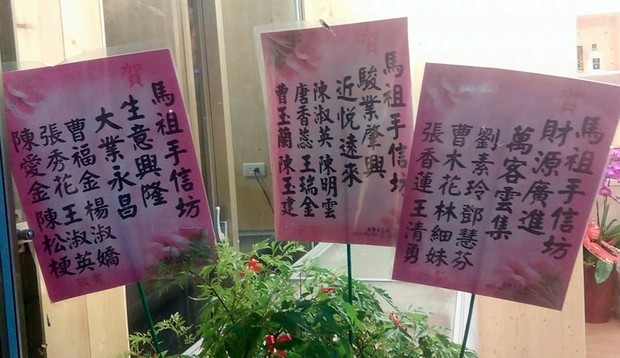 賀
馬祖手信坊
生意興隆
大業永昌
曹福金 楊淑嬌
張秀花 王淑英
陳愛金 陳松梗
敬賀
賀
馬祖手信坊
駿業肇興
近悅遠來
陳淑英 陳明雲
唐香蕊 王瑞金
曹玉蘭 陳玉建
賀
馬祖手信坊
財源廣進
萬客雲集
劉素玲 鄧慧芬
曹木花 林細妹
張香蓮 王清勇